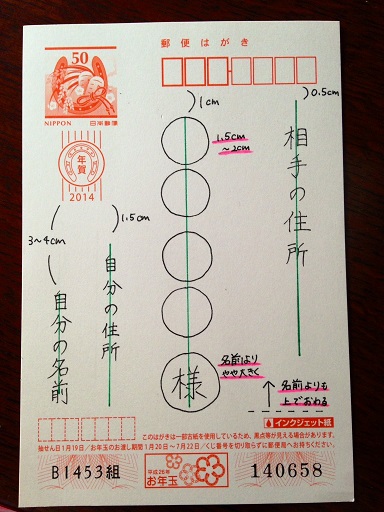 郵便はがき
50
NIPPON 日本郵便
年賀
2014
0.5cm
相手の住所
1cm
1.5cm
~2cm
様
名前より
やや大きく
名前よりも
上でおわる
1.5cm
自分の住所
3~4cm
自分の名前
インクジェット紙
このはがきは一部古紙を使用しているため、黒点等が見える場合があります。
抽せん日1月19日/お年玉のお渡し期間1月20日~7月22日/くじ番号を切り取らずに郵便局へお持ちください。
B1453組
平成26年
お年玉
140658